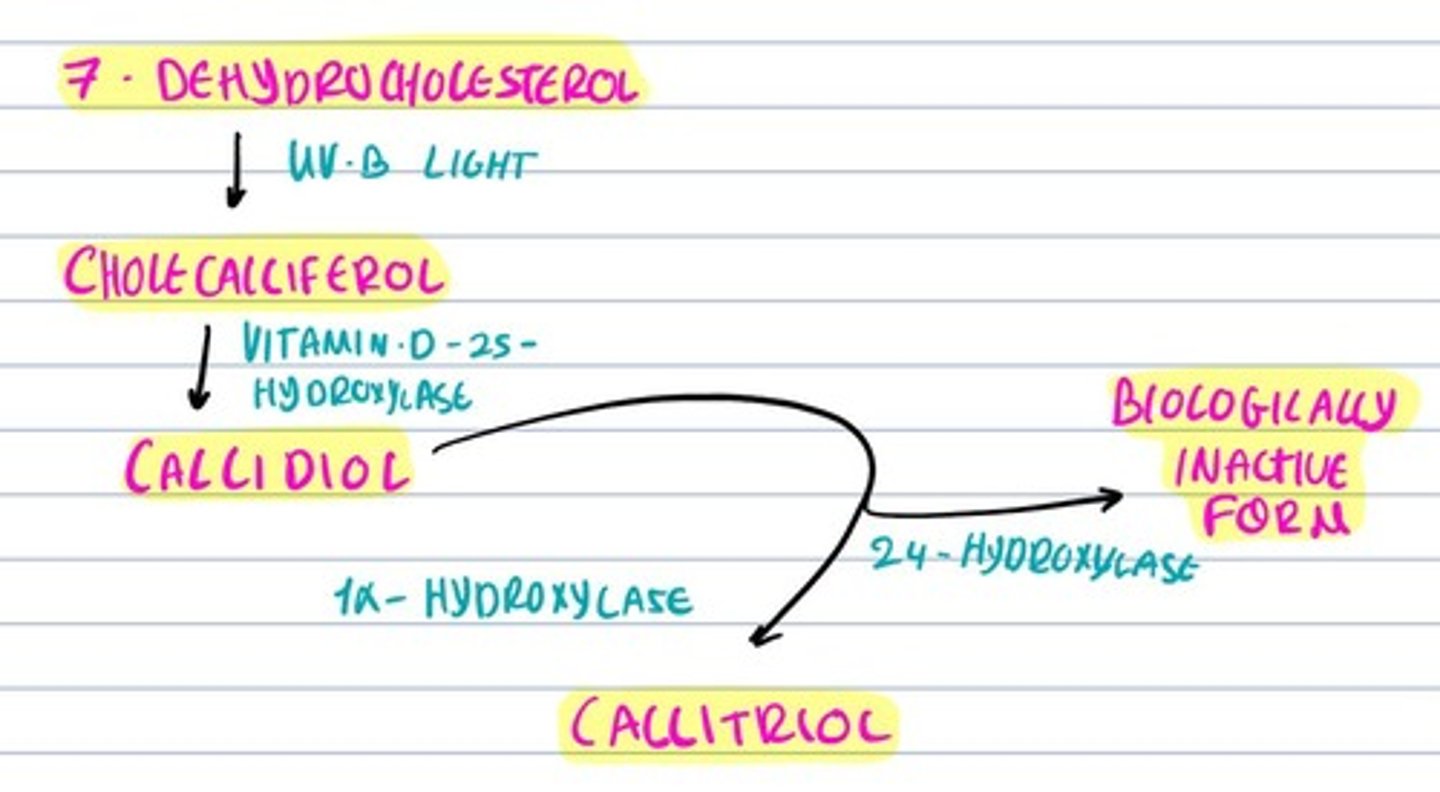 7 - DEHYDROCHOLESTEROL
UV-B LIGHT
CHOLECALCIFEROL
VITAMIN-D-25-
HYDROXYLASE
CALCIDIOL
BIOLOGICALLY
INACTIVE
FORM
24-HYDROXYLASE
1α- HYDROXYLASE
CALCITRIOL